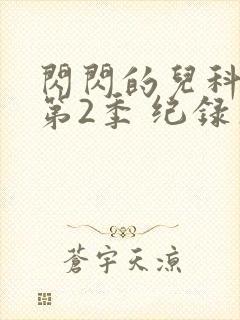 閃閃的兒科
第2季 纪録
蒼宇天凉